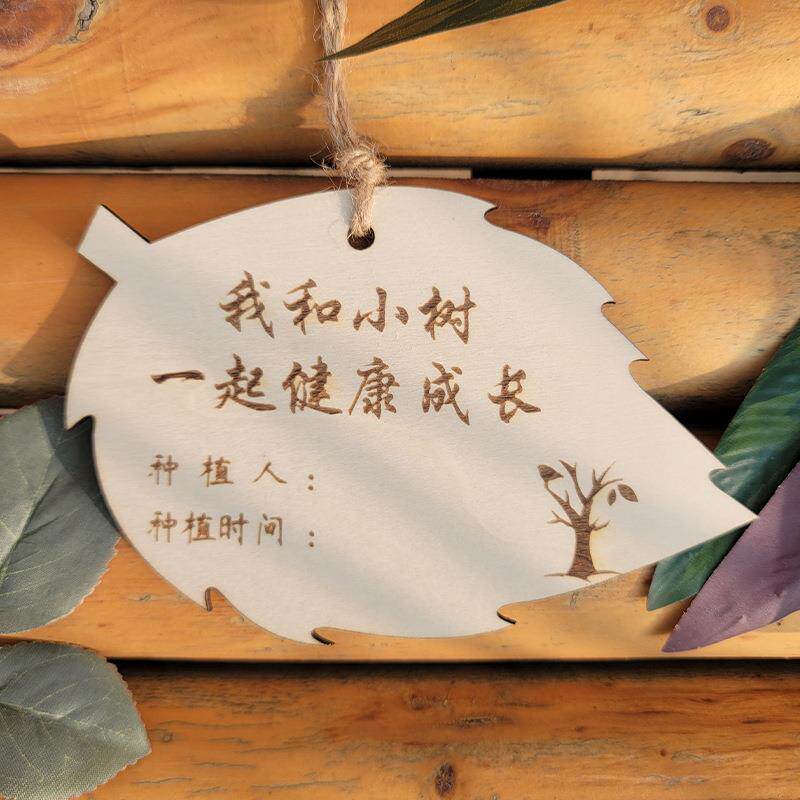 我和小树
一起健康成长
种植人：
种植时间：